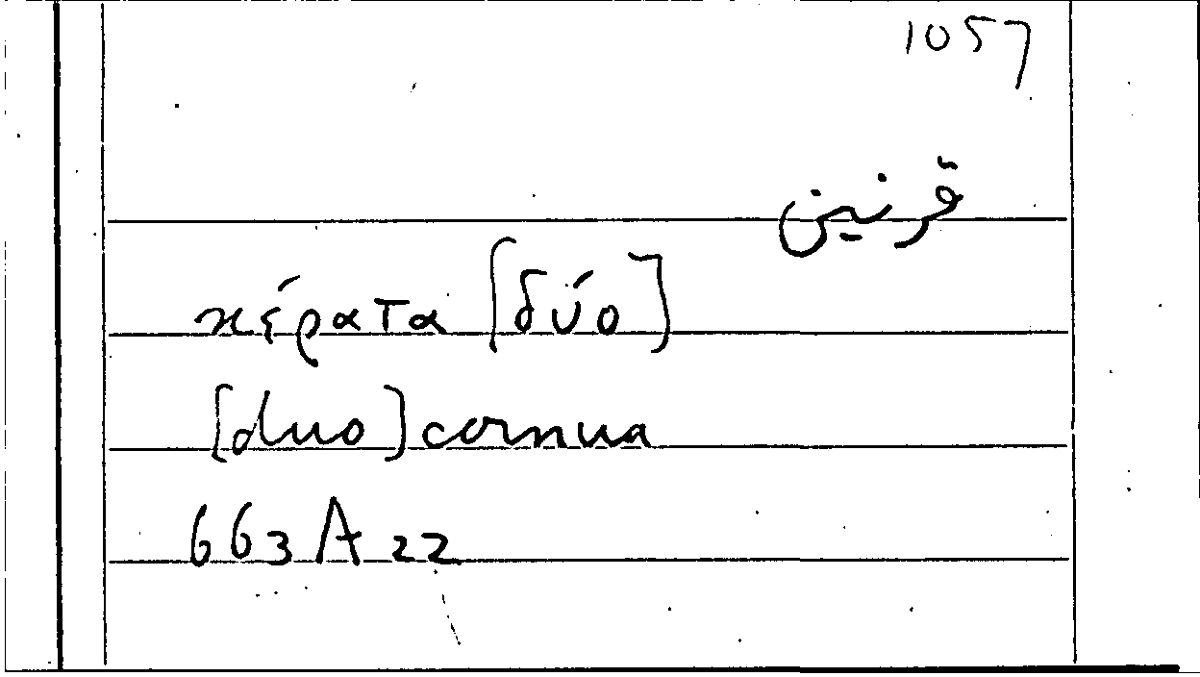 1057
قرنين
κέρατα [δύο]
[duo] cornua
663 A 22